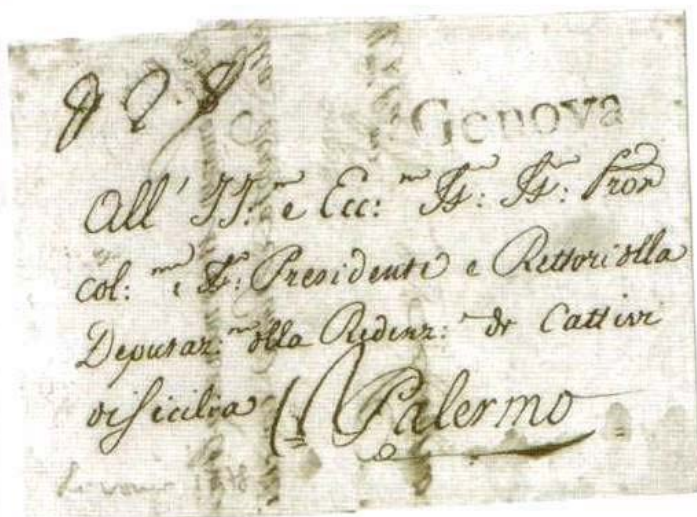 Genova
All' Ill: e Ecc: Pron
Col: Presidente e Rettori della
Deputaz: della Redenz: de Cattivi
di Sicilia Palermo